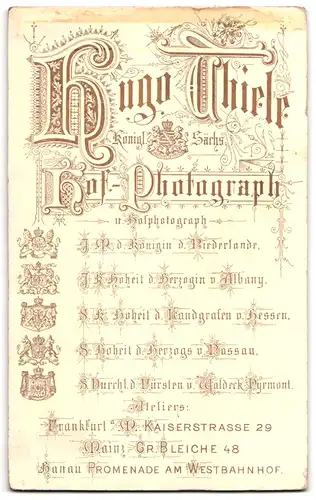 Hugo Thiele
Königl. Sächs.
Hof-Photograph
u. Hofphotograph
J. M. d. Königin d. Niederlande.
J. K. Hoheit d. Herzogin v. Albany.
S. K. Hoheit d. Landgrafen v. Hessen.
S. Hoheit d. Herzogs v. Nassau.
S. Durchl. d. Fürsten v. Waldeck-Pyrmont.
Ateliers:
Frankfurt a/M. KAISERSTRASSE 29
Mainz GR. BLEICHE 48
Hanau PROMENADE AM WESTBAHNHOF.